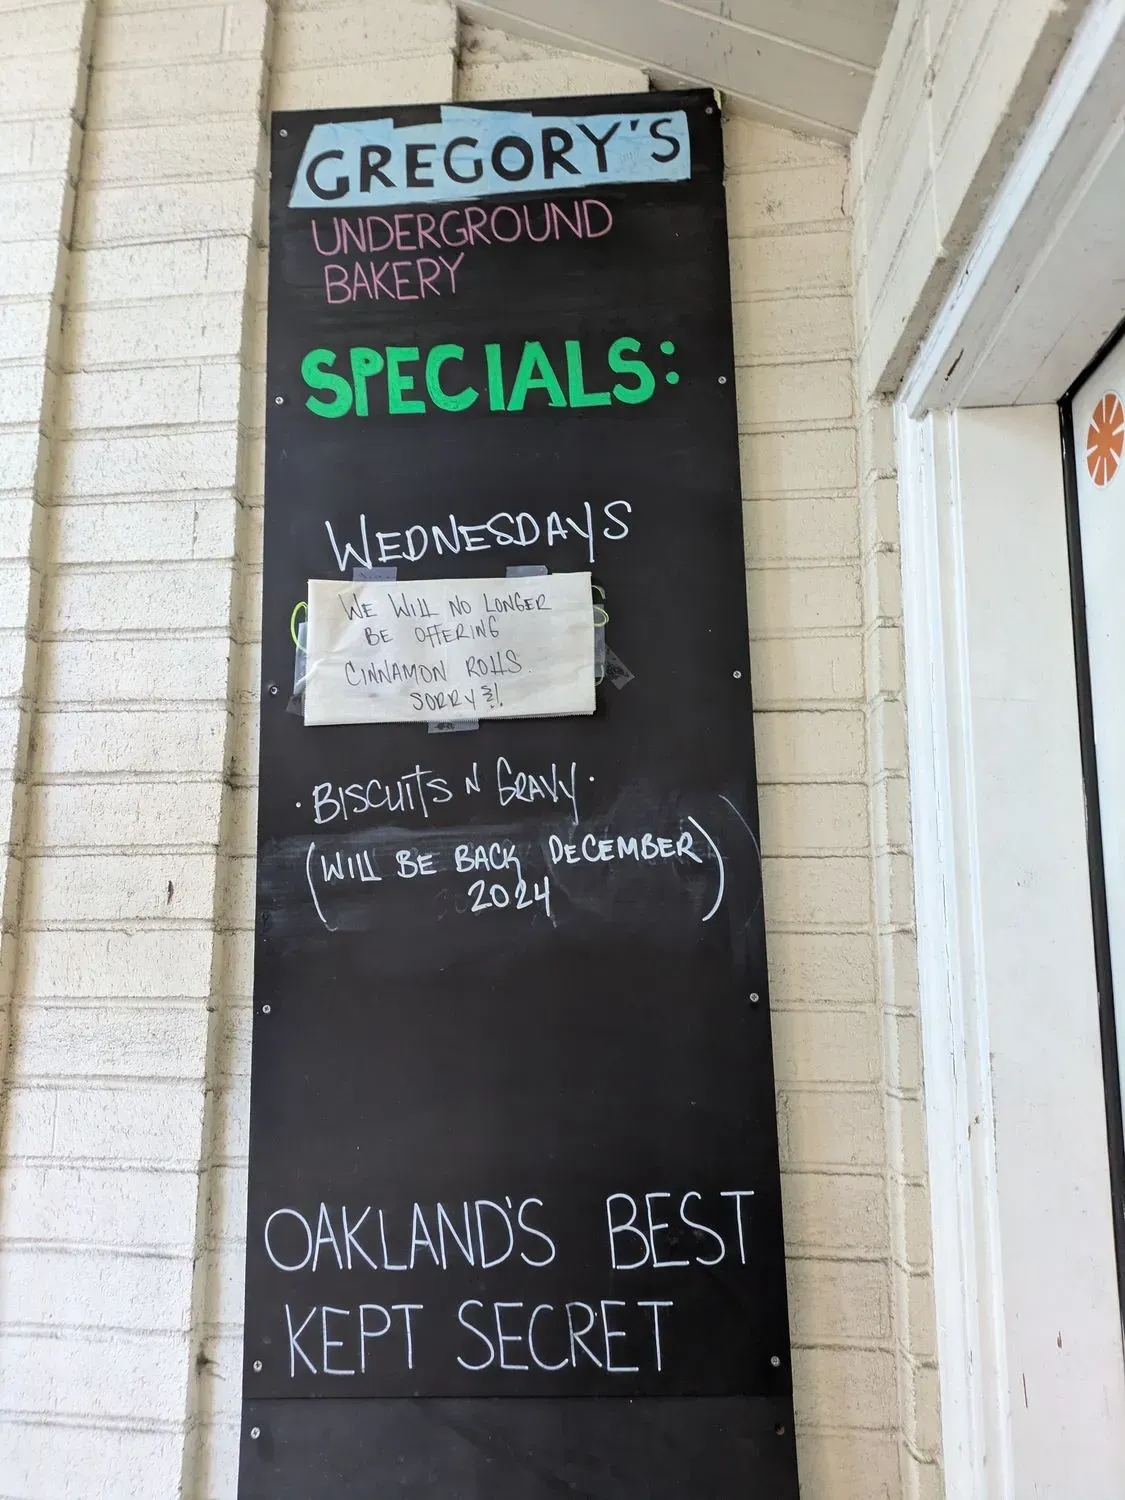 GREGORY'S
UNDERGROUND
BAKERY
SPECIALS:
WEDNESDAYS
WE WILL NO LONGER
BE OFFERING
CINNAMON ROLLS.
SORRY!
· BISCUITS N GRAVY ·
(WILL BE BACK DECEMBER
2024)
OAKLAND'S BEST
KEPT SECRET